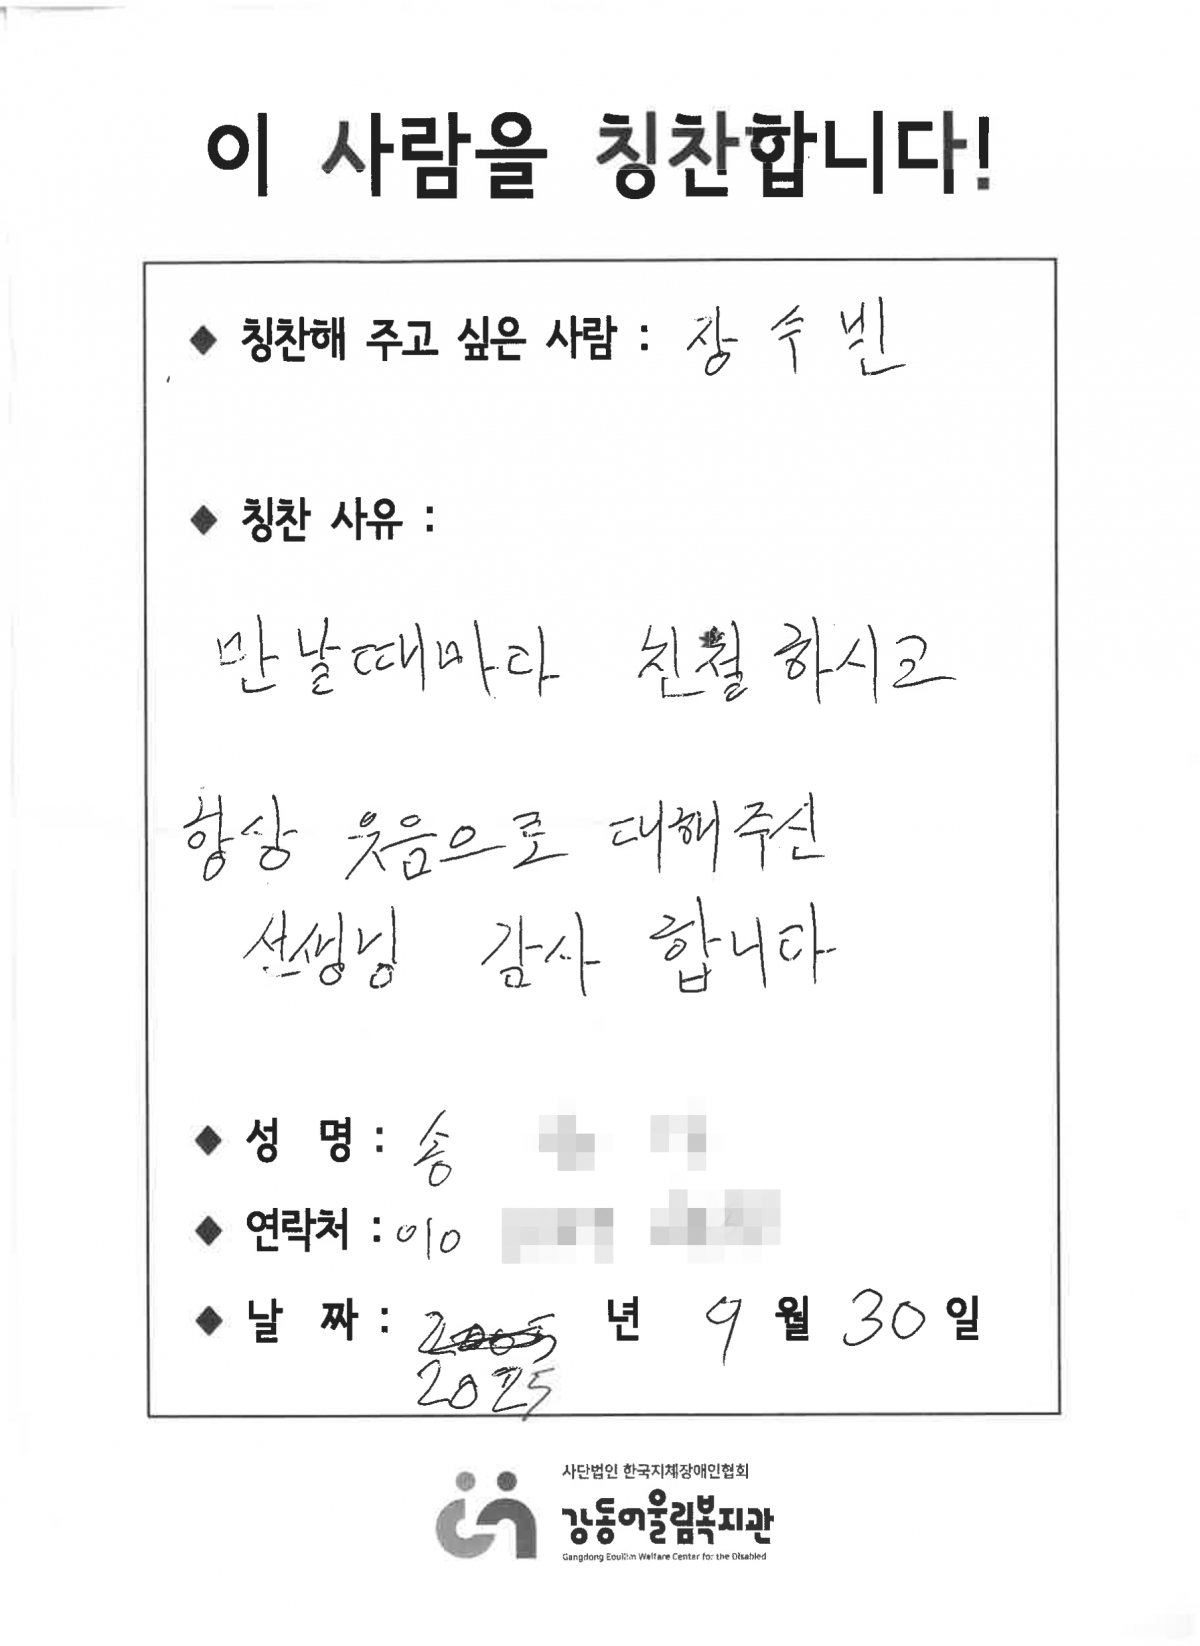 이 사람을 칭찬합니다!
◆ 칭찬해 주고 싶은 사람 : 장수빈
◆ 칭찬 사유 :
만날때마다 친절하시고
항상 웃음으로 대해주신
선생닝 감사 합니다
◆ 성 명 : 송
◆ 연락처 : 010
◆ 날 짜 : 2005 년 9 월 30 일
2025
사단법인 한국지체장애인협회
강동어울림복지관
Gangdong Eoullim Welfare Center for the Disabled